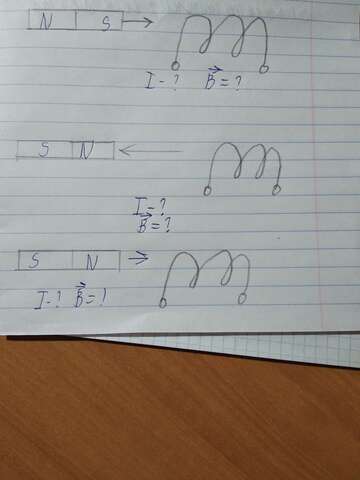 N S
I-? B⃗=?
S N
I-?
B⃗=?
S N
I-? B⃗=?